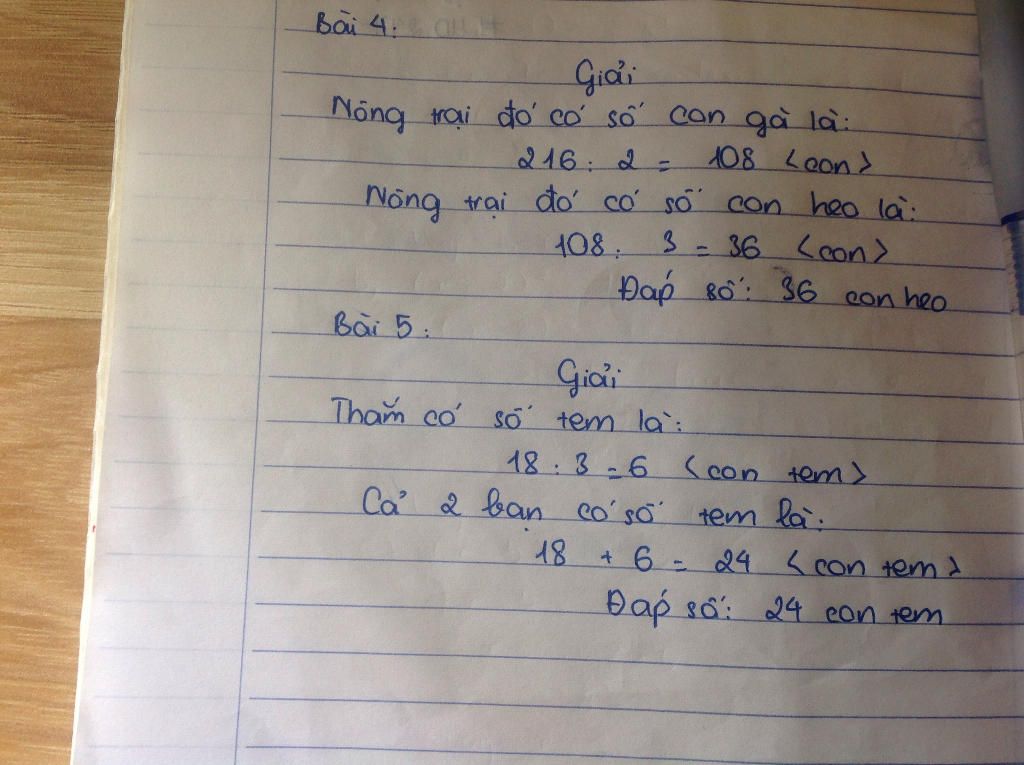 Bài 4:
Giải
Nông trại đó có số con gà là:
216 : 2 = 108 <con>
Nông trại đó có số con heo là:
108 : 3 = 36 <con>
Đáp số: 36 con heo
Bài 5:
Giải
Thắm có số tem là:
18 : 3 = 6 <con tem>
Cả 2 bạn có số tem là:
18 + 6 = 24 <con tem>
Đáp số: 24 con tem